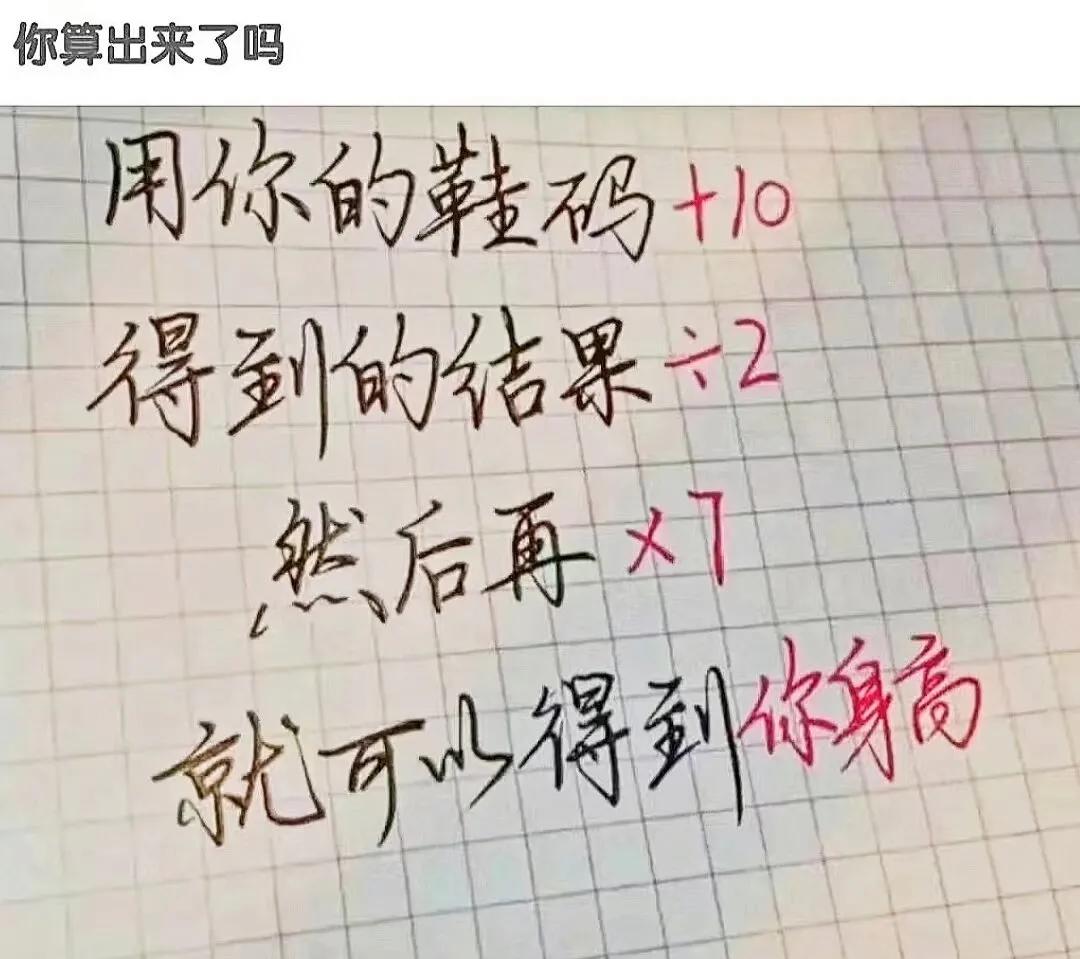 你算出来了吗
用你的鞋码+10
得到的结果÷2
然后再×7
就可以得到你身高